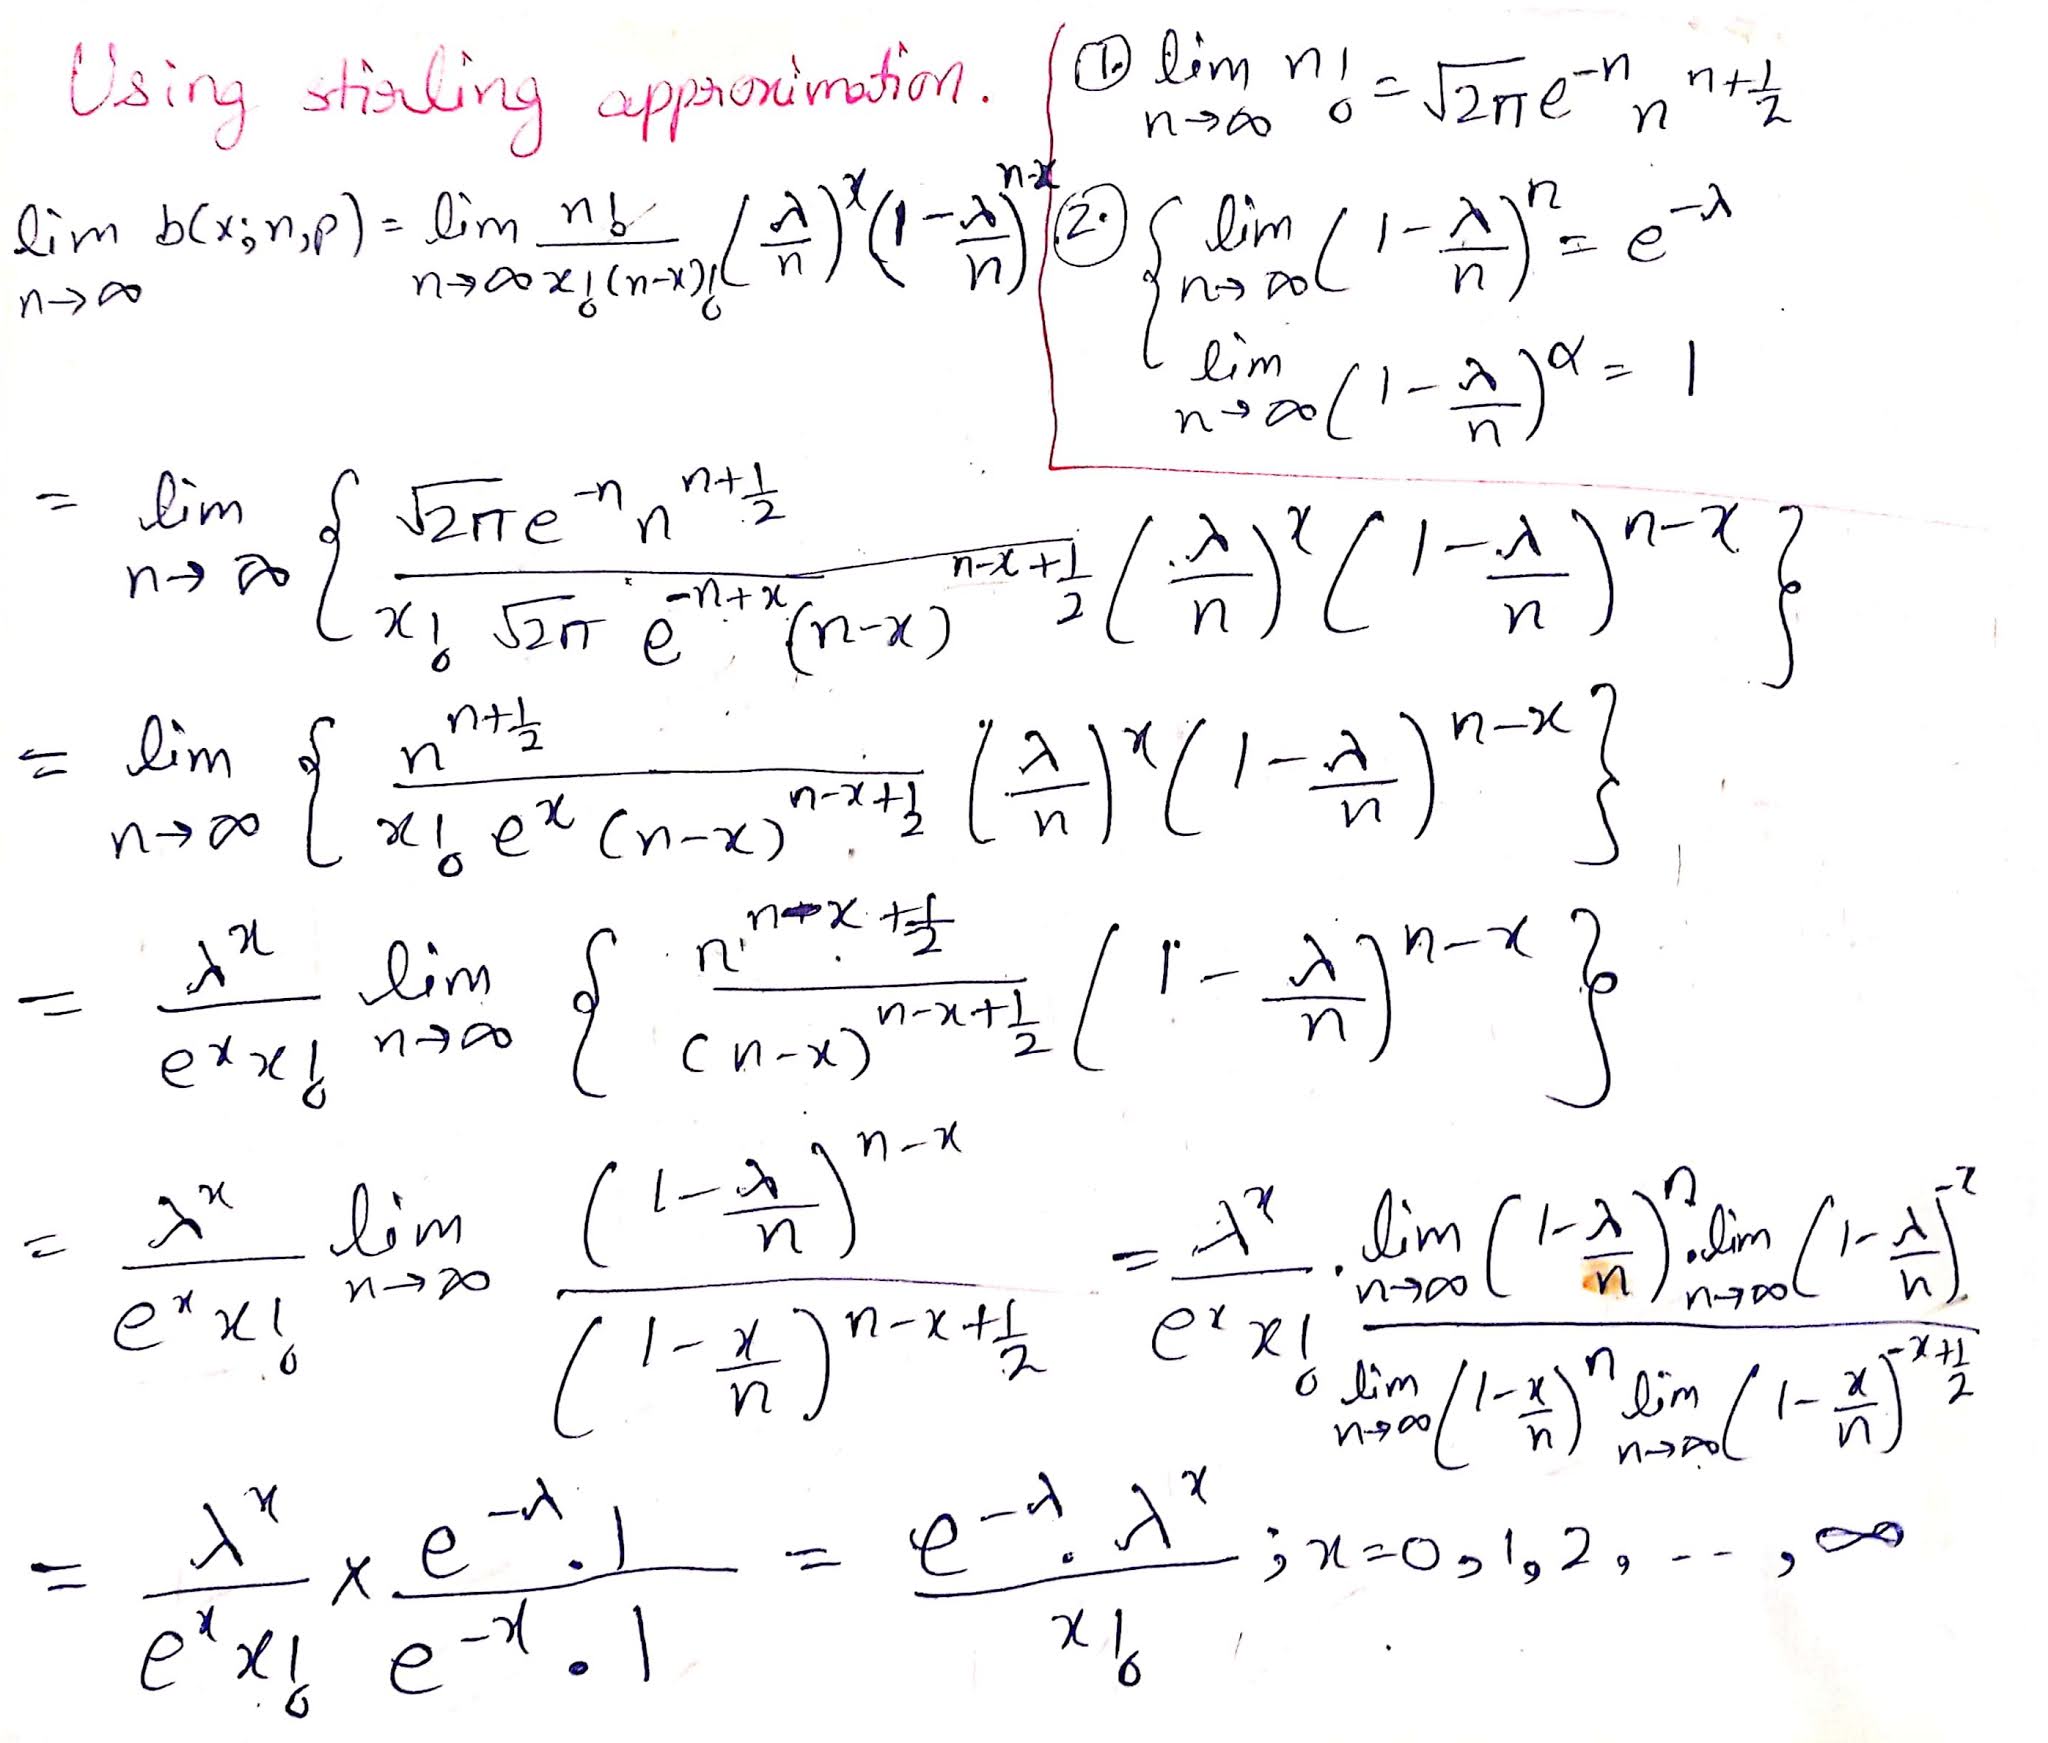 Using stirling approximation.
① lim_{n→∞} n! = √2π e^{-n} n^{n+1/2}
lim_{n→∞} b(x;n,p) = lim_{n→∞} n!/(x!(n-x)!) (λ/n)^x (1-λ/n)^{n-x}
②. { lim_{n→∞} (1-λ/n)^n = e^{-λ}
lim_{n→∞} (1-λ/n)^α = 1
= lim_{n→∞} { (√2π e^{-n} n^{n+1/2})/(x! √2π e^{-n+x} (n-x)^{n-x+1/2}) (λ/n)^x (1-λ/n)^{n-x} }
= lim_{n→∞} { n^{n+1/2}/(x! e^x (n-x)^{n-x+1/2}) (λ/n)^x (1-λ/n)^{n-x} }
= λ^x/(e^x x!) lim_{n→∞} { n^{n-x+1/2}/(n-x)^{n-x+1/2} (1-λ/n)^{n-x} }
= λ^x/(e^x x!) lim_{n→∞} (1-λ/n)^{n-x}/(1-x/n)^{n-x+1/2} = λ^x/(e^x x!) . (lim_{n→∞} (1-λ/n)^n . lim_{n→∞} (1-λ/n)^{-x})/(lim_{n→∞} (1-x/n)^n lim_{n→∞} (1-x/n)^{-x+1/2})
= λ^x/(e^x x!) × (e^{-λ} . 1)/(e^{-x} . 1) = (e^{-λ} . λ^x)/x! ; x=0,1,2, --- , ∞